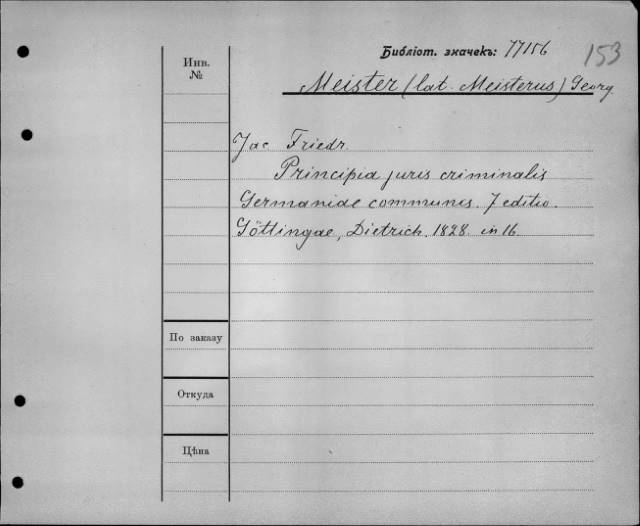 Библіот. значекъ: 77156
153
Инв.
№
Meister (lat. Meisterus) Georg.
Jac. Friedr.
Principia juris criminalis
Germaniae communis. 7 editio.
Göttingae, Dietrich. 1828. in 16.
По заказу
Откуда
Цѣна